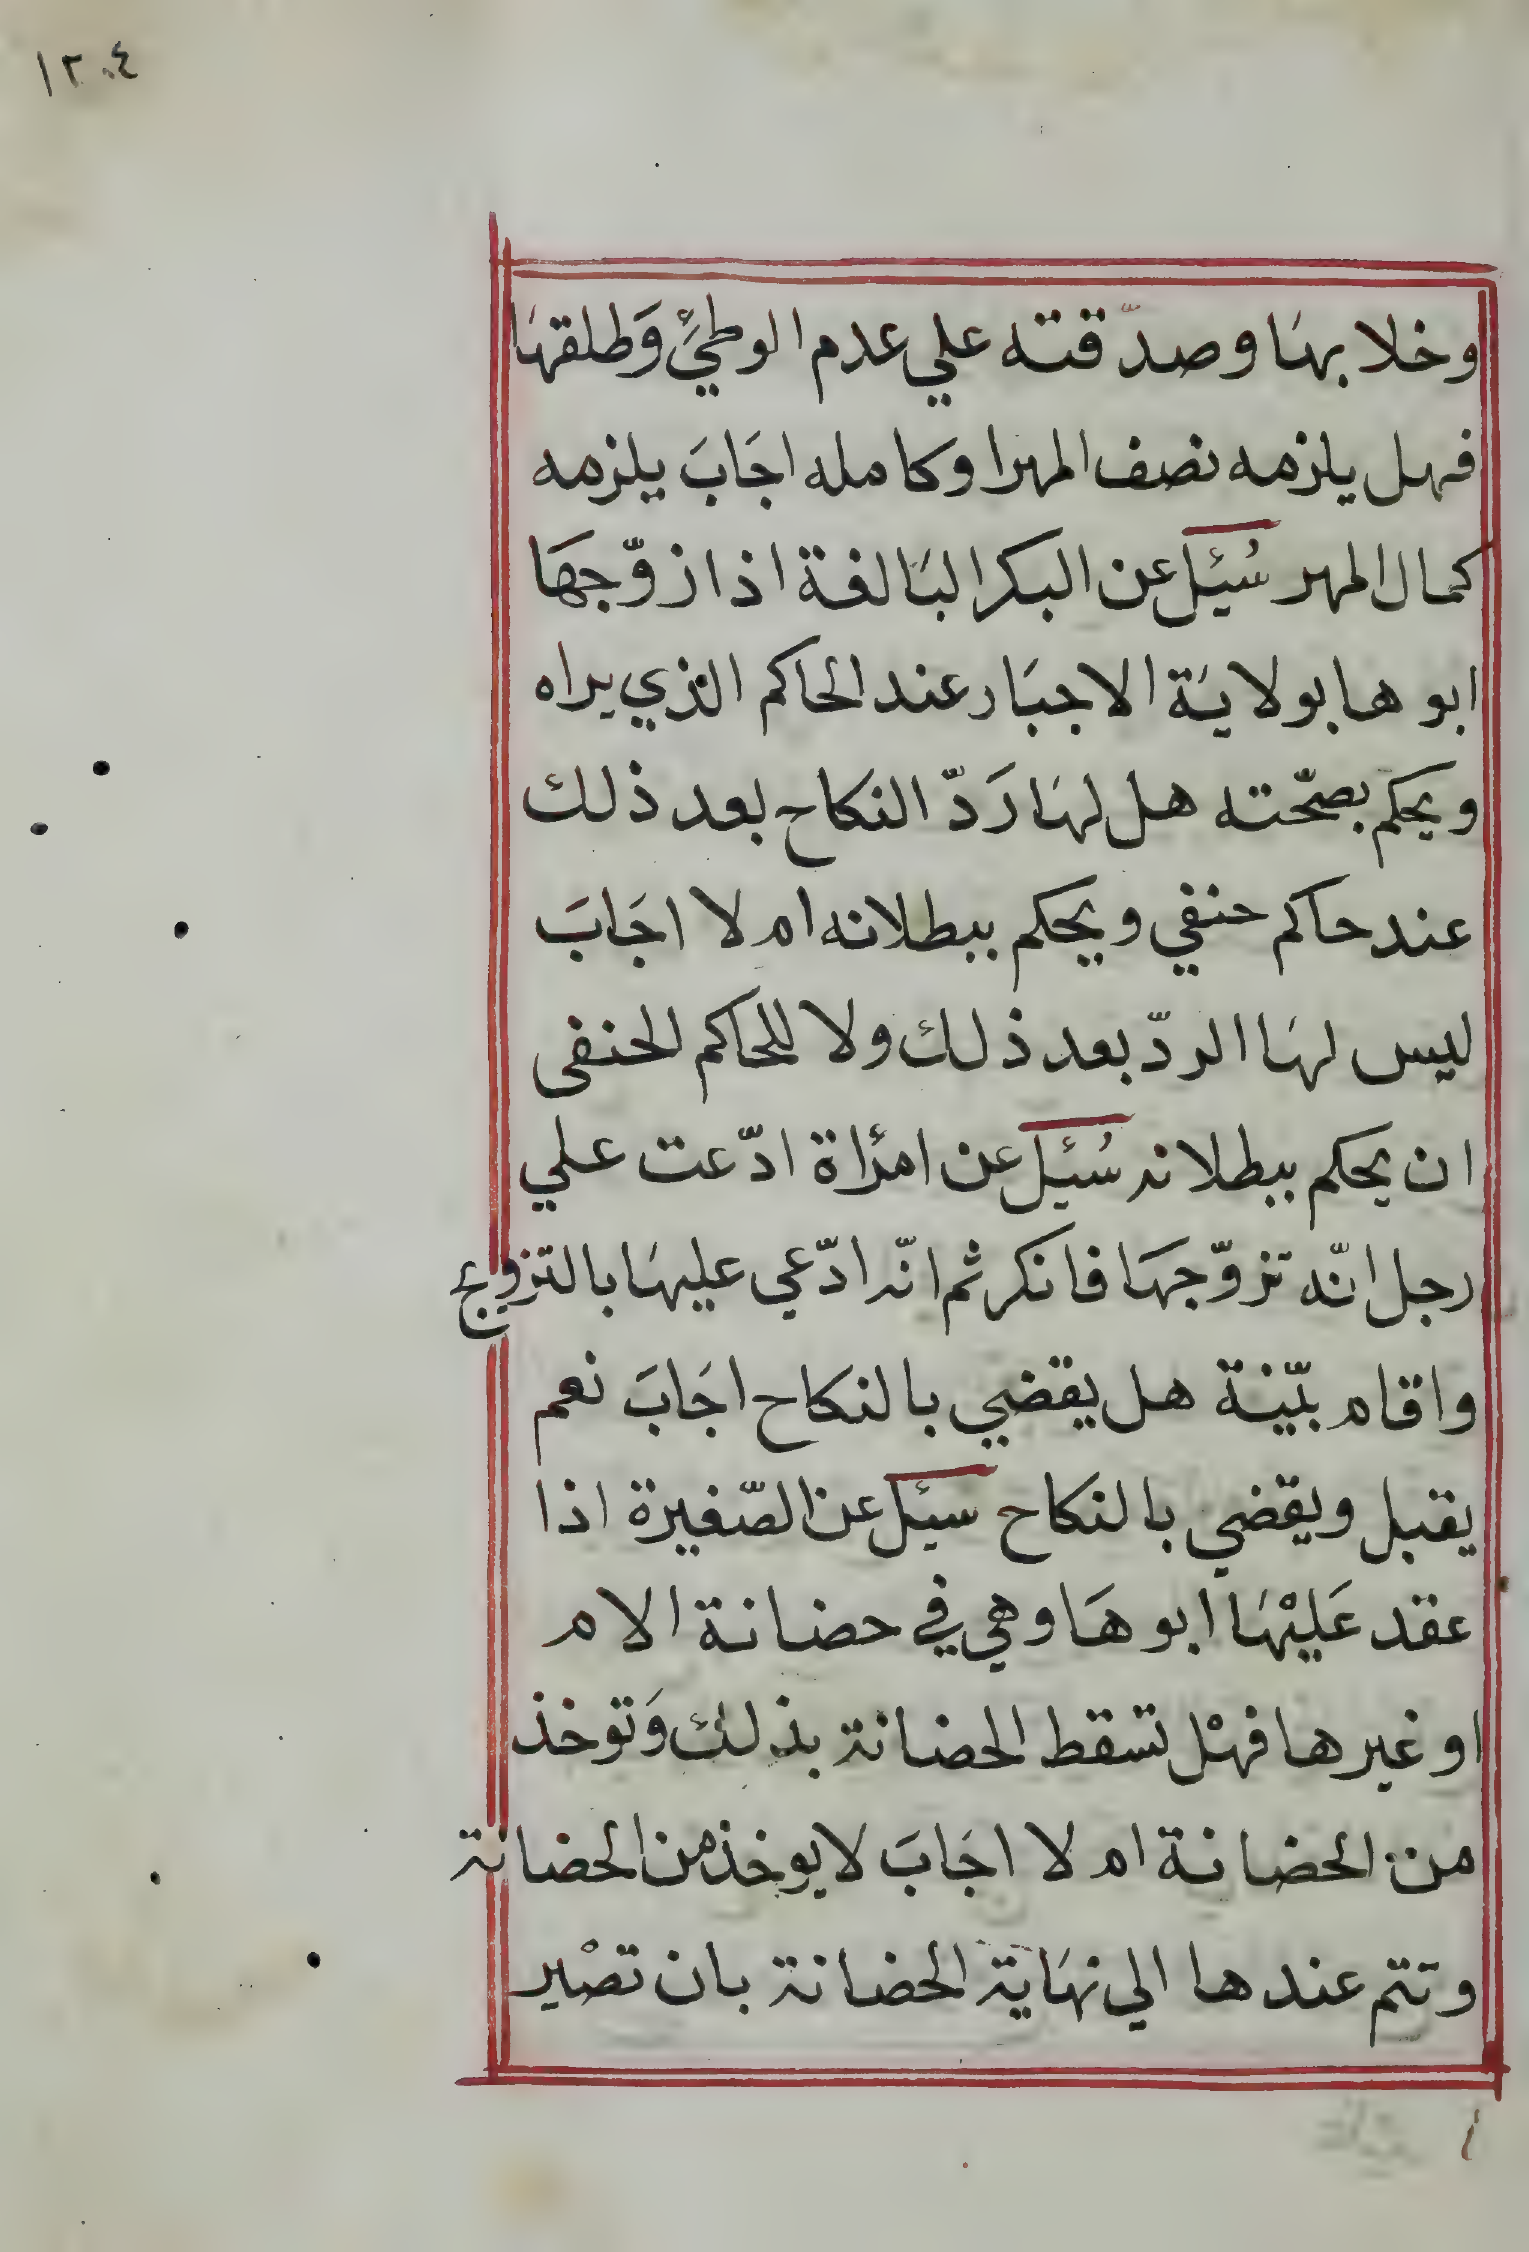 ١٢٠٤
وخلا بهَا وصدّقته علي عدم الوطيْء وَطلقهَا
فهل يلزمه نصف المهر او كامله اجَابَ يلزمه
كمال المهر سُئِلَ عن البكر البَالغة اذا زوّجهَا
ابوها بولايَة الاجبَار عند الحاكم الذي يراه
ويحكم بصحّته هل لهَا رَدّ النكاح بعد ذلك
عند حاكم حنفي ويحكم ببطلانه ام لا اجَابَ
ليس لهَا الردّ بعد ذلك ولا للحاكم الحنفى
ان يحكم ببطلانه سُئِلَ عن امرٔاة ادّعت علي
رجل انّه تزوّجهَا فانكر ثم انّه ادّعي عليهَا بالتزويج
واقام بيّنة هل يقضي بالنكاح اجَابَ نعم
يقبل ويقضي بالنكاح سئِل عن الصّغيرة اذا
عقد عَليْهَا ابوهَا وهي في حضانة الام
او غيرها فهْل تسقط الحضانة بذلك وَتوخذ
من الحضانة ام لا اجَابَ لا يوخذ من الحضانة
وتتم عندها الي نهَاية الحضانة بان تصْير